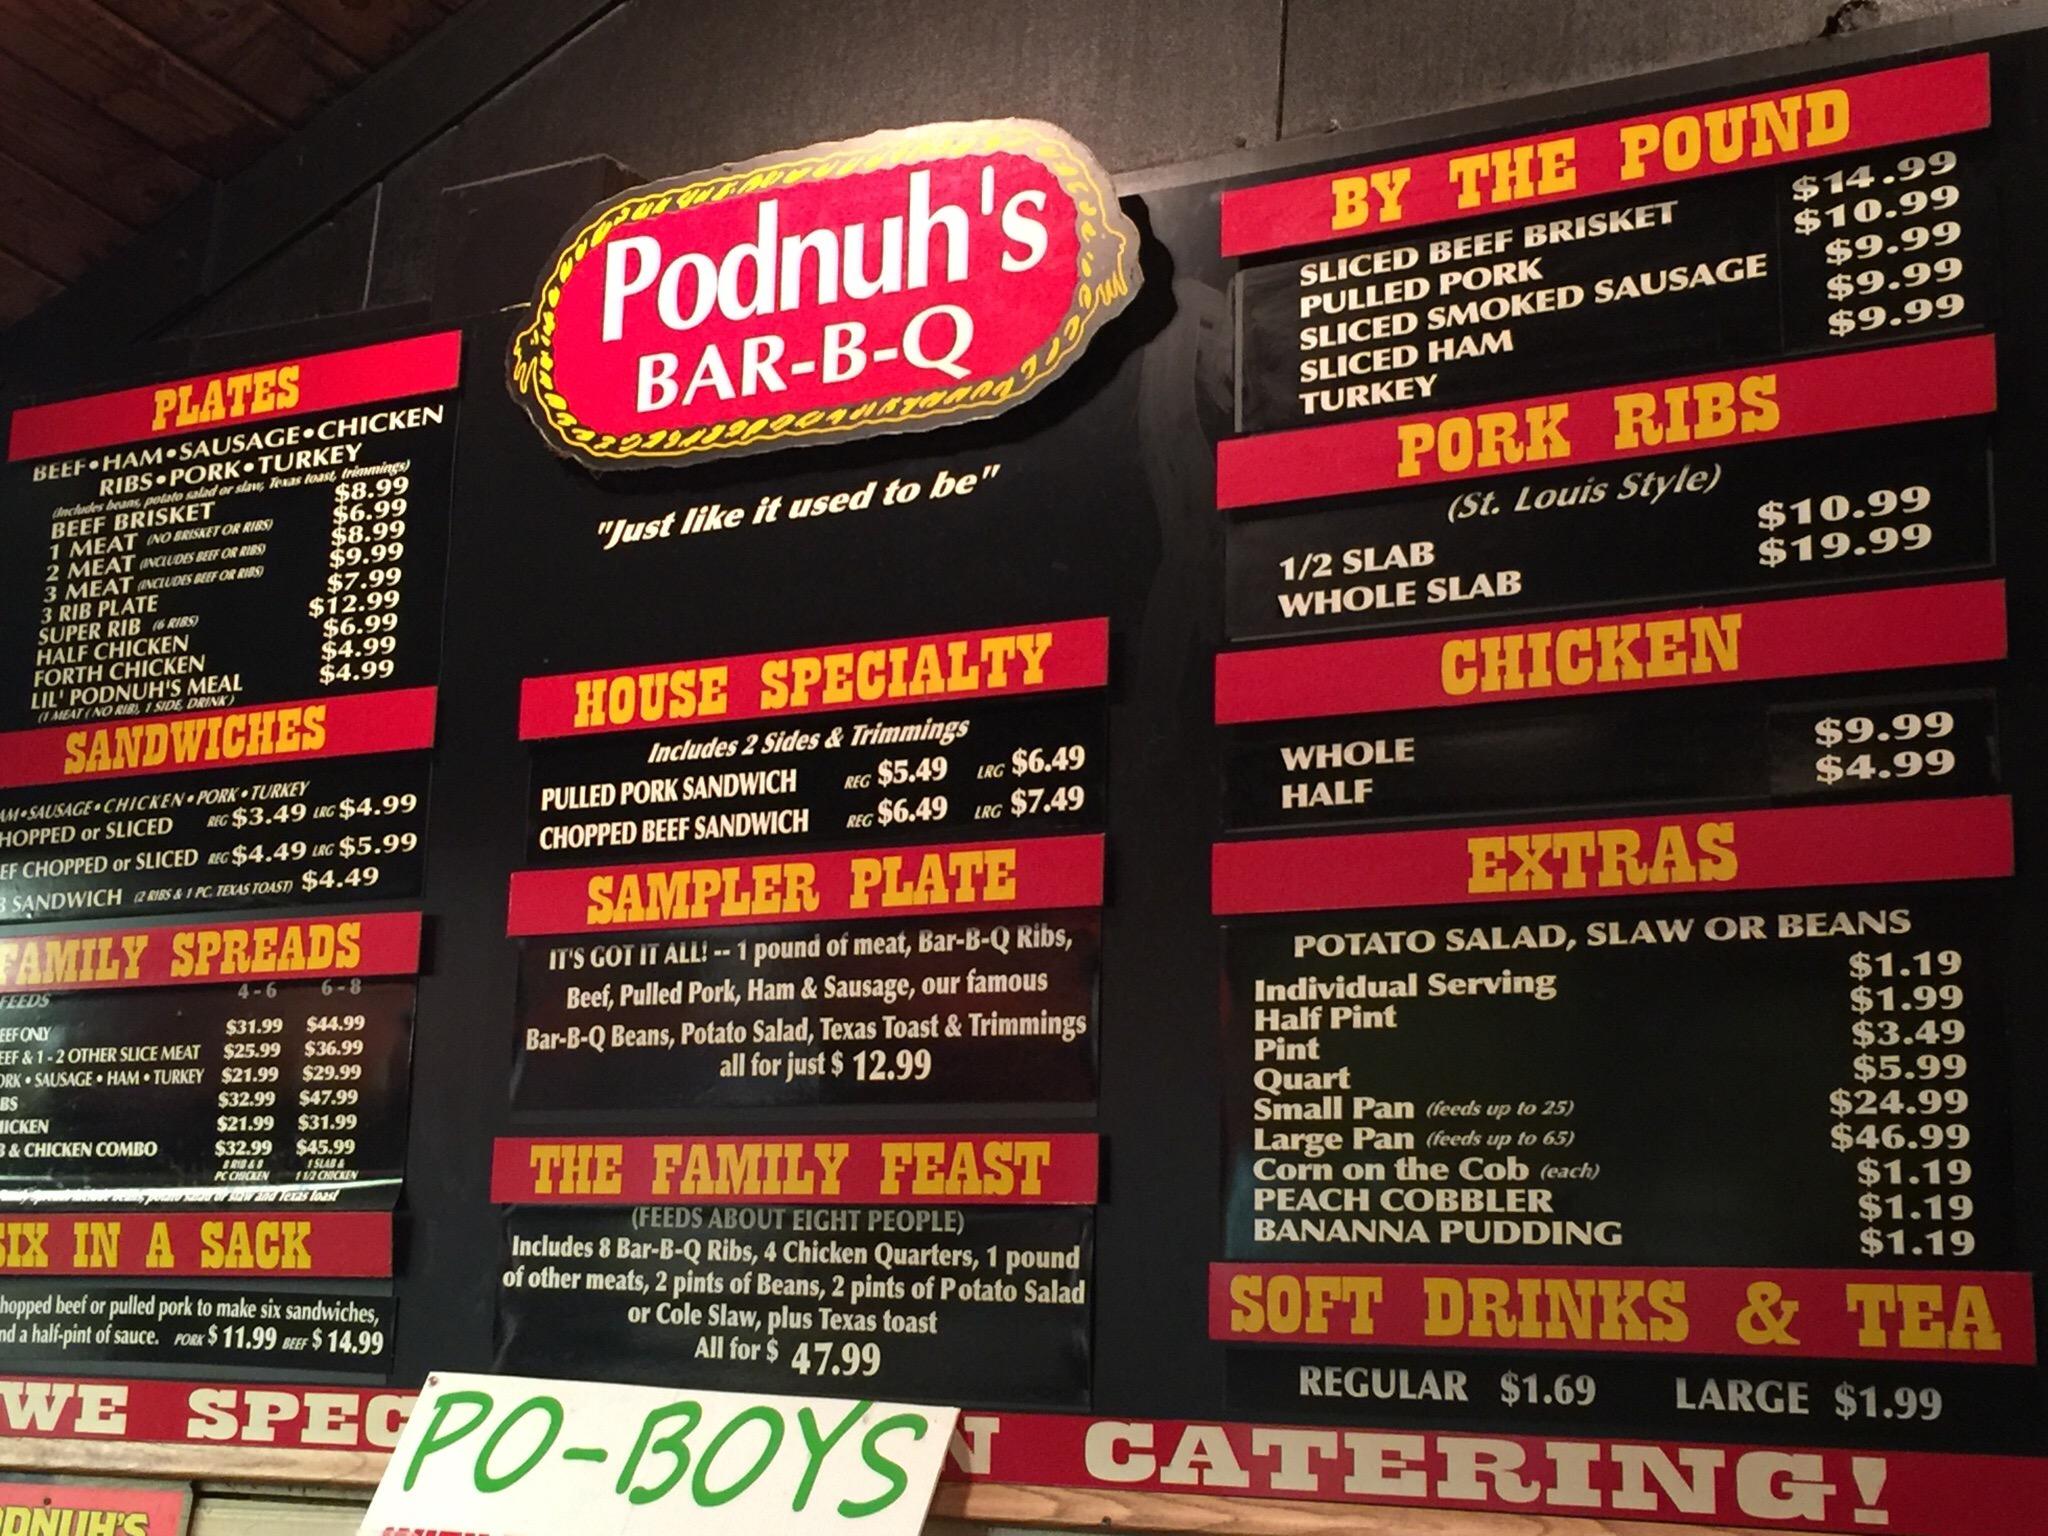 Podnuh's
BAR-B-Q
"Just like it used to be"
PLATES
BEEF•HAM•SAUSAGE•CHICKEN
RIBS•PORK•TURKEY
(includes beans, potato salad or slaw, Texas toast, trimmings)
BEEF BRISKET $8.99
1 MEAT (NO BRISKET OR RIBS) $6.99
2 MEAT (INCLUDES BEEF OR RIBS) $8.99
3 MEAT (INCLUDES BEEF OR RIBS) $9.99
3 RIB PLATE $7.99
SUPER RIB (6 RIBS) $12.99
HALF CHICKEN $6.99
FORTH CHICKEN $4.99
LIL' PODNUH'S MEAL $4.99
(1 MEAT (NO RIB), 1 SIDE, DRINK)
SANDWICHES
AM•SAUSAGE•CHICKEN•PORK•TURKEY
HOPPED or SLICED REG $3.49 LRG $4.99
EF CHOPPED or SLICED REG $4.49 LRG $5.99
B SANDWICH (2 RIBS & 1 PC. TEXAS TOAST) $4.49
FAMILY SPREADS
FEEDS 4-6 6-8
EEF ONLY $31.99 $44.99
EEF & 1-2 OTHER SLICE MEAT $25.99 $36.99
ORK • SAUSAGE • HAM • TURKEY $21.99 $29.99
BS $32.99 $47.99
HICKEN $21.99 $31.99
B & CHICKEN COMBO $32.99 $45.99
8 RIB & 8 1 SLAB &
PC CHICKEN 1 1/2 CHICKEN
include beans, potato salad or slaw and Texas toast
SIX IN A SACK
hopped beef or pulled pork to make six sandwiches,
nd a half-pint of sauce. PORK $11.99 BEEF $14.99
HOUSE SPECIALTY
Includes 2 Sides & Trimmings
PULLED PORK SANDWICH REG $5.49 LRG $6.49
CHOPPED BEEF SANDWICH REG $6.49 LRG $7.49
SAMPLER PLATE
IT'S GOT IT ALL! -- 1 pound of meat, Bar-B-Q Ribs,
Beef, Pulled Pork, Ham & Sausage, our famous
Bar-B-Q Beans, Potato Salad, Texas Toast & Trimmings
all for just $ 12.99
THE FAMILY FEAST
(FEEDS ABOUT EIGHT PEOPLE)
Includes 8 Bar-B-Q Ribs, 4 Chicken Quarters, 1 pound
of other meats, 2 pints of Beans, 2 pints of Potato Salad
or Cole Slaw, plus Texas toast
All for $ 47.99
BY THE POUND
SLICED BEEF BRISKET $14.99
PULLED PORK $10.99
SLICED SMOKED SAUSAGE $9.99
SLICED HAM $9.99
TURKEY $9.99
PORK RIBS
(St. Louis Style)
1/2 SLAB $10.99
WHOLE SLAB $19.99
CHICKEN
WHOLE $9.99
HALF $4.99
EXTRAS
POTATO SALAD, SLAW OR BEANS
Individual Serving $1.19
Half Pint $1.99
Pint $3.49
Quart $5.99
Small Pan (feeds up to 25) $24.99
Large Pan (feeds up to 65) $46.99
Corn on the Cob (each) $1.19
PEACH COBBLER $1.19
BANANNA PUDDING $1.19
SOFT DRINKS & TEA
REGULAR $1.69 LARGE $1.99
WE SPEC N CATERING!
PO-BOYS
ODNUH'S